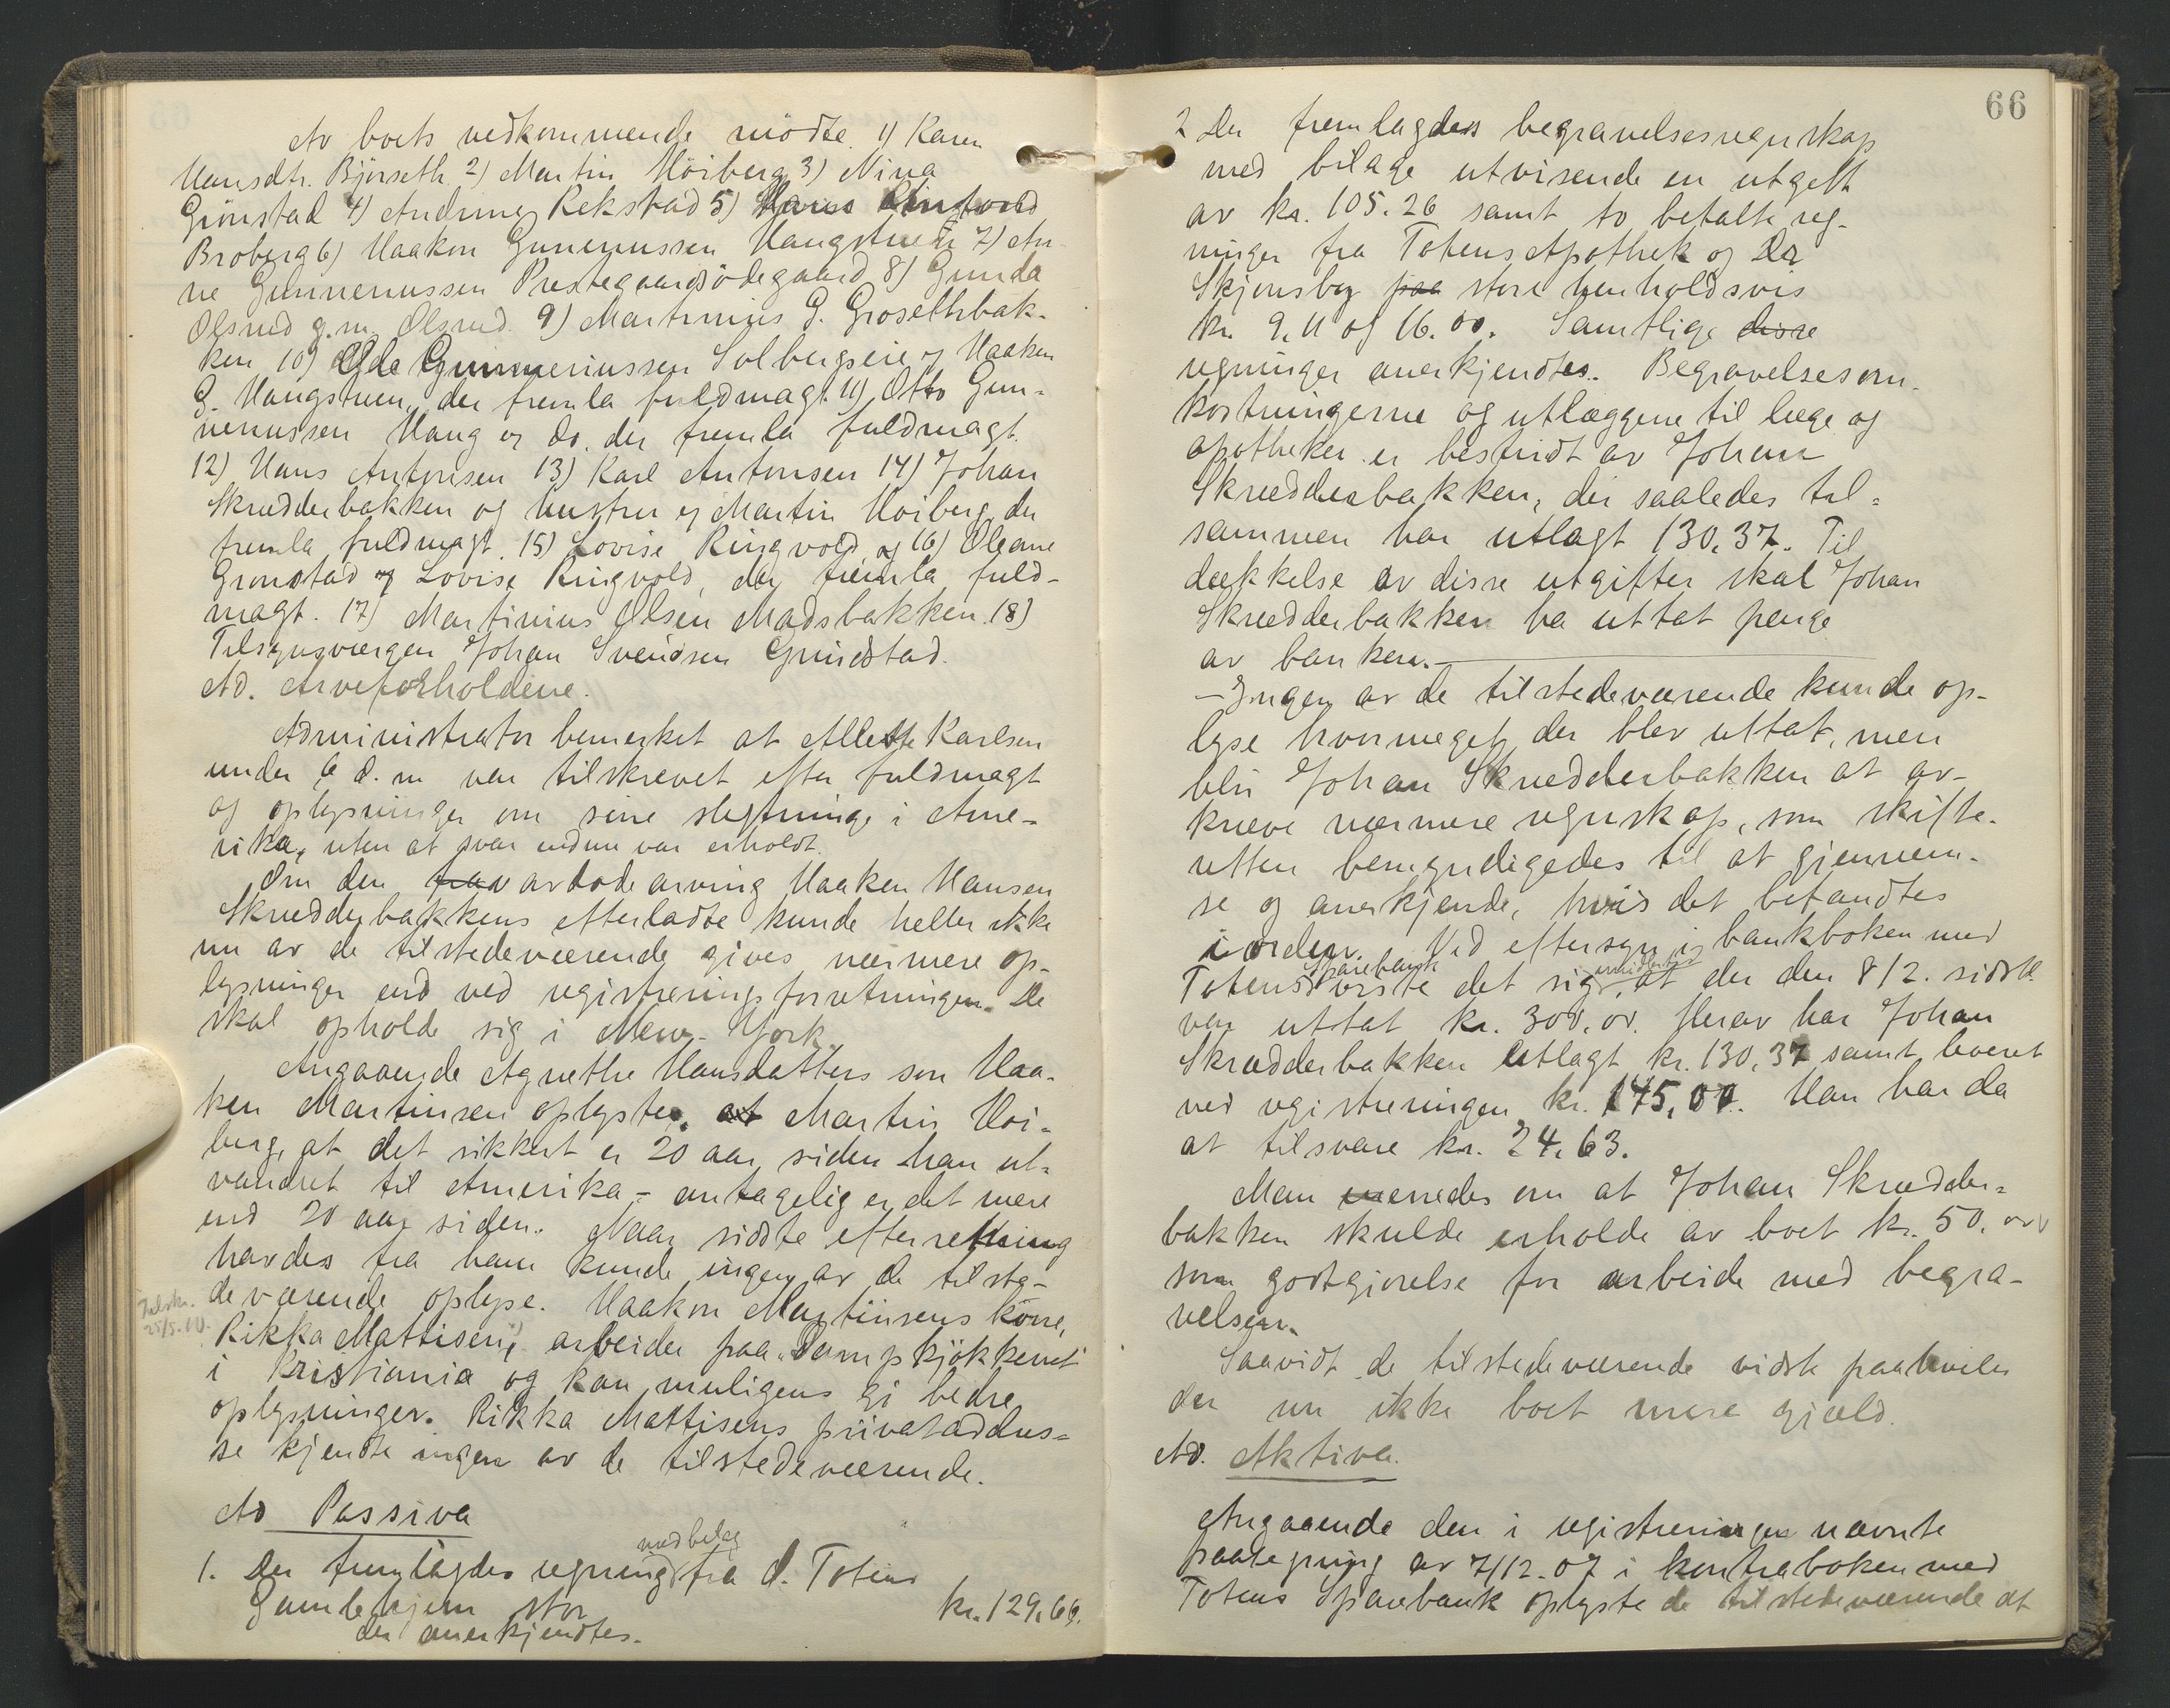 Av boets vedkommende mödte. 1) Karen
Hansdtr. Björseth 2) Martin Höiberg 3) Nina
Grönstad 4) Andrine Rekstad 5)
Broberg 6) Haakon Gunerussen Haugstuen 7) An-
ne Gunnerussen Prestegaardsödegaard 8) Gunda
Olsrud g.m. Olsrud. 9) Martinius G. Grosethbak-
ken 10) Gunneriussen Solbergseie v/ Haaken
G. Haugstuen, der fremla fuldmagt. 11) Otto Gun-
nerussen Haug v/ do. der fremla fuldmagt.
12) Hans Antonsen 13) Karl Antonsen 14) Johan
Skrædderbakken og hustru v/ Martin Hoiberg, der
fremla fuldmagt. 15) Lovise Ringvold og 16) Oleane
Gronstad v/ Lovise Ringvold, der fremla fuld-
magt. 17) Martinius Olsen Madsbakken. 18)
Tilsynsværgen Johan Svendsen Grindstad.
Ad. Arveforholdene.
Administrator bemerket at Allette Karlsen
under 6 d. m var tilskrevet efter fuldmagt
og oplysninger om sine slegtninge i Ame-
rika, uten at svar endnu var erholdt.
Om den fra avdode arving Haaken Hansen
Skrædderbakkens efterladte kunde heller ikke
nu av de tilstedeværende gives nærmere op-
lysninger end ved registreringsforretningen. De
skal opholde sig i New-York.
Angaaende Agnethe Hansdatters son Haa-
ken Martinsen oplyste, at Martin Hoi-
berg, at det sikkert er 20 aar siden han ut-
vandret til Amerika - antagelig er det mere
end 20 aar siden. Naar sidste efterretning
havdes fra ham kunde ingen av de tilste-
deværende oplyse. Haakon Martinsens köne,
Tilskr.
25/5.10.
Rikka Mattisen, arbeider paa "Dampkjökkenet"
i Kristiania og kan muligens gi bedre
oplysninger. Rikka Mattisens privataddres-
se kjendte ingen av de tilstedeværende.
Ad Passiva
med bilag
1. Der fremlagdes regning fra Ö. Totens
Gamlehjem stor kr. 129,66.
der anerkjendtes.
66
2 Der fremlagdes begravelsesregnskap
med bilage utvisende en utgift
av kr. 105.26 samt to betalte reg-
ninger fra Totens Apothek og Dr
Skjonsby paa store henholdsvis
kr. 9.11 og 16.00. Samtlige disse
regninger anerkjendtes. Begravelsesom-
kostningerne og utlæggene til læge og
apotheker er bestridt av Johan
Skrædderbakken, der saaledes til-
sammen har utlagt 130,37. Til
dækkelse av disse utgifter skal Johan
Skrædderbakken ha uttat penge
av banken.
- Ingen av de tilstedeværende kunde op-
lyse hvormeget der blev uttat, men
blir Johan Skrædderbakken at av-
kræve nærmere regnskap, som skifte-
retten bemyndigedes til at gjennem-
se og anerkjende, hvis det befandtes
i orden. Ved eftersyn i bankboken med
Sparebank imidlertid
Totens viste det sig, at der den 8/2. sidstl.
var uttat kr. 300,00. Herav har Johan
Skrædderbakken utlagt kr. 130,37 samt leveret
ved registreringen kr. 145,00. Han har da
at tilsvare kr. 24,63.
Man enedes om at Johan Skrædder-
bakken skulde erholde av boet kr. 50,00
som godtgjorelse for arbeide med begra-
velsen.
Saavidt de tilstedeværende vidste paahviler
der nu ikke boet mere gjæld.
Ad. Aktiva.
Angaaende den i registreringen nævnte
paategning av 7/12.07 i kontraboken med
Totens Sparebank oplyste de tilstedeværende at